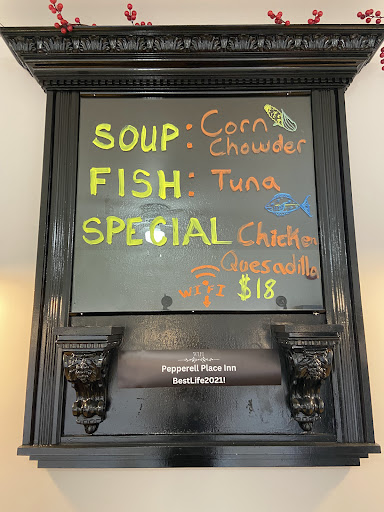 SOUP: Corn Chowder
FISH: Tuna
SPECIAL Chicken
Quesadilla
WIFI $18
Pepperell Place Inn
BestLife2021!